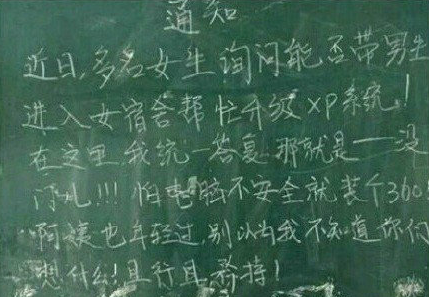 通知
近日,多名女生询问能否带男生
进入女宿舍帮忙升级XP系统!
在这里我统一答复那就是——没
门儿!!!怕电脑不安全就装个360!
阿姨也年轻过,别以为我不知道你们
想什么!且行且矜持!